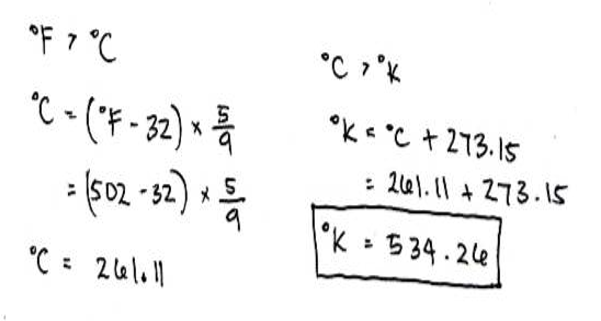 °F > °C
°C = (°F - 32) × 5/9
= (502 - 32) × 5/9
°C = 261.11
°C > °K
°K = °C + 273.15
= 261.11 + 273.15
°K = 534.26